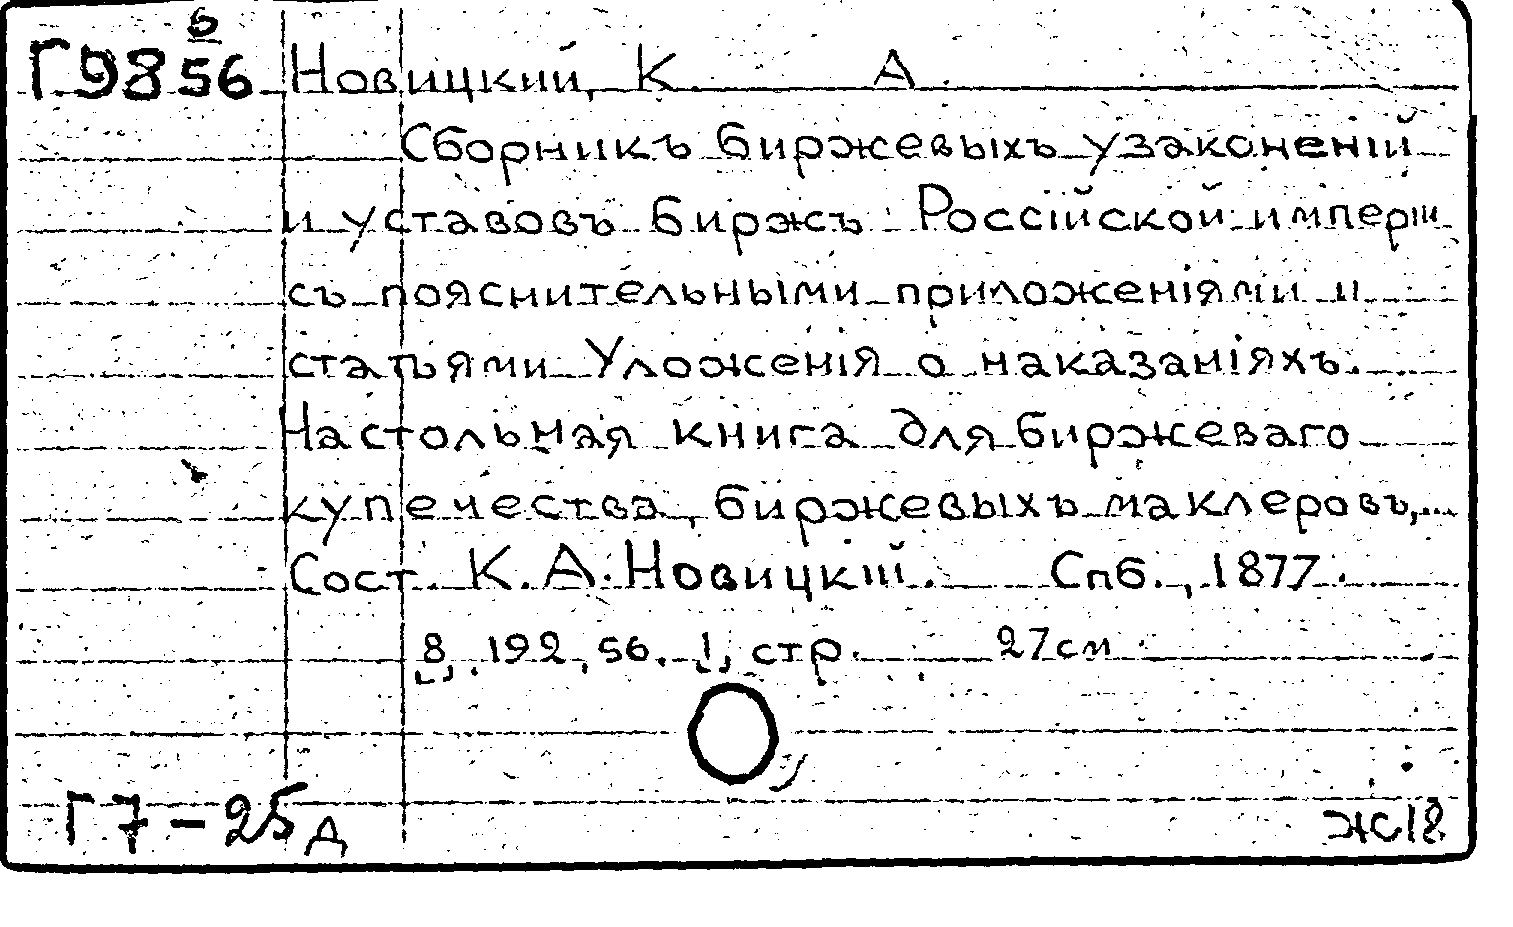 Г98 6/56 Новицкий, К. А.
Сборникъ биржевыхъ узаконенiй
и уставовъ биржъ Россiйской имперiи
съ пояснительными приложенiями и
статьями Уложенiя о наказанiяхъ.
Настольная книга для биржеваго
купечества, биржевыхъ маклеровъ,...
Сост. К. А. Новицкiй. Спб., 1877.
[8], 192, 56. [1] стр. 27см
Г7-25д
ж18